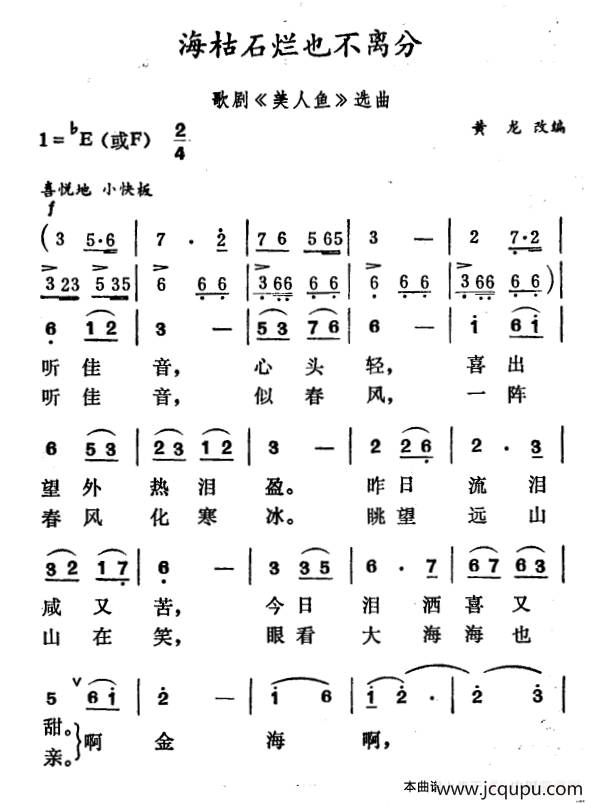 海枯石烂也不离分
歌剧《美人鱼》选曲
1=♭E（或F） 2/4
黄 龙 改编
喜悦地 小快板
f
(3 5·6 | 7 · 2 | 76 565 | 3 — | 2 7·2 |
323 535 | 6 66 | 366 66 | 6 66 | 366 66)
6 12 | 3 — | 53 76 | 6 — | 1 61 |
听 佳 音， 心 头 轻， 喜 出
听 佳 音， 似 春 风， 一 阵
6 53 | 23 12 | 3 — | 2 26 | 2 · 3 |
望 外 热 泪 盈。 昨 日 流 泪
春 风 化 寒 冰。 眺 望 远 山
32 17 | 6 — | 3 35 | 6 · 7 | 67 63 |
咸 又 苦， 今 日 泪 洒 喜 又
山 在 笑， 眼 看 大 海 海 也
5 V 61 | 2 — | 1 6 | 1 2 · | 2 3 |
甜。 啊 金 海 啊，
亲。
本曲谱 www.jcqupu.com